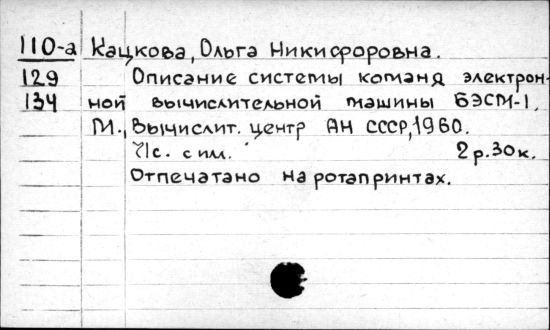 110-а Кацкова, Ольга Никифоровна.
129 Описание системы команд электрон-
134 ной вычислительной машины БЭСМ-1.
М., Вычислит. центр АН СССР, 1960.
71с. с им. 2р.30к.
Отпечатано на ротапринтах.